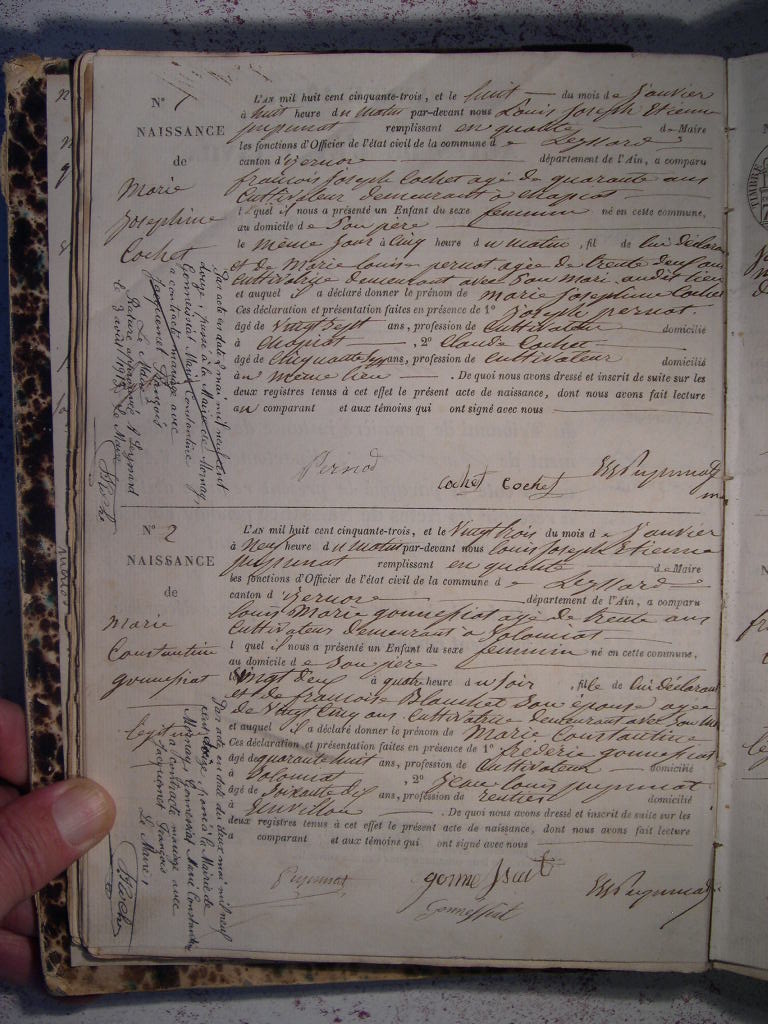 N° 1
NAISSANCE
de
Marie
Josephine
Cochet
L'AN mil huit cent cinquante-trois, et le huit du mois de Janvier
à huit heure du matin par-devant nous Louis Joseph Etienne
Puysunat remplissant en qualité de Maire
les fonctions d'Officier de l'état civil de la commune de Leyssard
canton d'Izernore département de l'Ain, a comparu
francois Joseph Cochet agé de quarante ans
Cultivateur demeurant à
lequel il nous a présenté un Enfant du sexe feminin né en cette commune,
au domicile de Son père
le même jour à Cinq heure du matin, fil de lui déclarant
et de Marie Louise pernot agée de trente deux ans
Cultivatrice demeurant avec Son mari audit lieu
et auquel il a déclaré donner le prénom de Marie Josephine Cochet
Ces déclaration et présentation faites en présence de 1° Joseph pernot
âgé de Vingt Sept ans, profession de Cultivateur domicilié
à , 2° Claude Cochet
âgé de Cinquante ans, profession de Cultivateur domicilié
à même lieu . De quoi nous avons dressé et inscrit de suite sur les
deux registres tenus à cet effet le présent acte de naissance, dont nous avons fait lecture
au comparant et aux témoins qui ont signé avec nous
Cochet Cochet
Par acte en date 2 mai mil neuf cent
douze passé à la Mairie de Mornay,
Gonnessiat Marie Constantine
a contracté mariage avec
Jacquemet François
Le Maire
Rature approuvée à Leyssard
le 3 août 1913 Le Maire
N° 2
NAISSANCE
de
Marie
Constantine
gonnessiat
légitime
L'AN mil huit cent cinquante-trois, et le Vingt trois du mois de Janvier
à Neuf heure du matin par-devant nous Louis Joseph Etienne
Puysunat remplissant en qualité de Maire
les fonctions d'Officier de l'état civil de la commune de Leyssard
canton d'Izernore département de l'Ain, a comparu
Louis Marie gonnessiat agé de trente ans
Cultivateur demeurant à Solomiat
lequel il nous a présenté un Enfant du sexe feminin né en cette commune,
au domicile de Son père
le Vingt Deux à quatre heure du Soir, fille de lui déclarant
et de francoise Blanchet Son épouse agée
de Vingt Cinq ans Cultivatrice demeurant avec Son
et auquel il a déclaré donner le prénom de Marie Constantine
Ces déclaration et présentation faites en présence de 1° frédéric gonnessiat
âgé de quarante huit ans, profession de Cultivateur domicilié
à Solomiat , 2° Jean Louis Puysunat
âgé de Soixante dix ans, profession de rentier domicilié
à . De quoi nous avons dressé et inscrit de suite sur les
deux registres tenus à cet effet le présent acte de naissance, dont nous avons fait lecture
a comparant et aux témoins qui ont signé avec nous
Par acte en date du deux mai mil neuf
cent douze passé à la Mairie de
Mornay, Gonnessiat Marie Constantine
a contracté mariage avec
Jacquemet François
Le Maire,